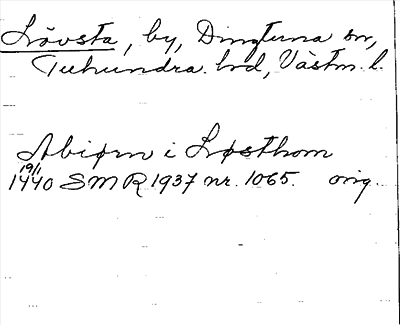 Lövsta, by, Dingtuna sn,
Tuhundra hd, Västm. l.
Abiørn i Løsthom
19/1
1440 SMR 1937 nr. 1065. orig.